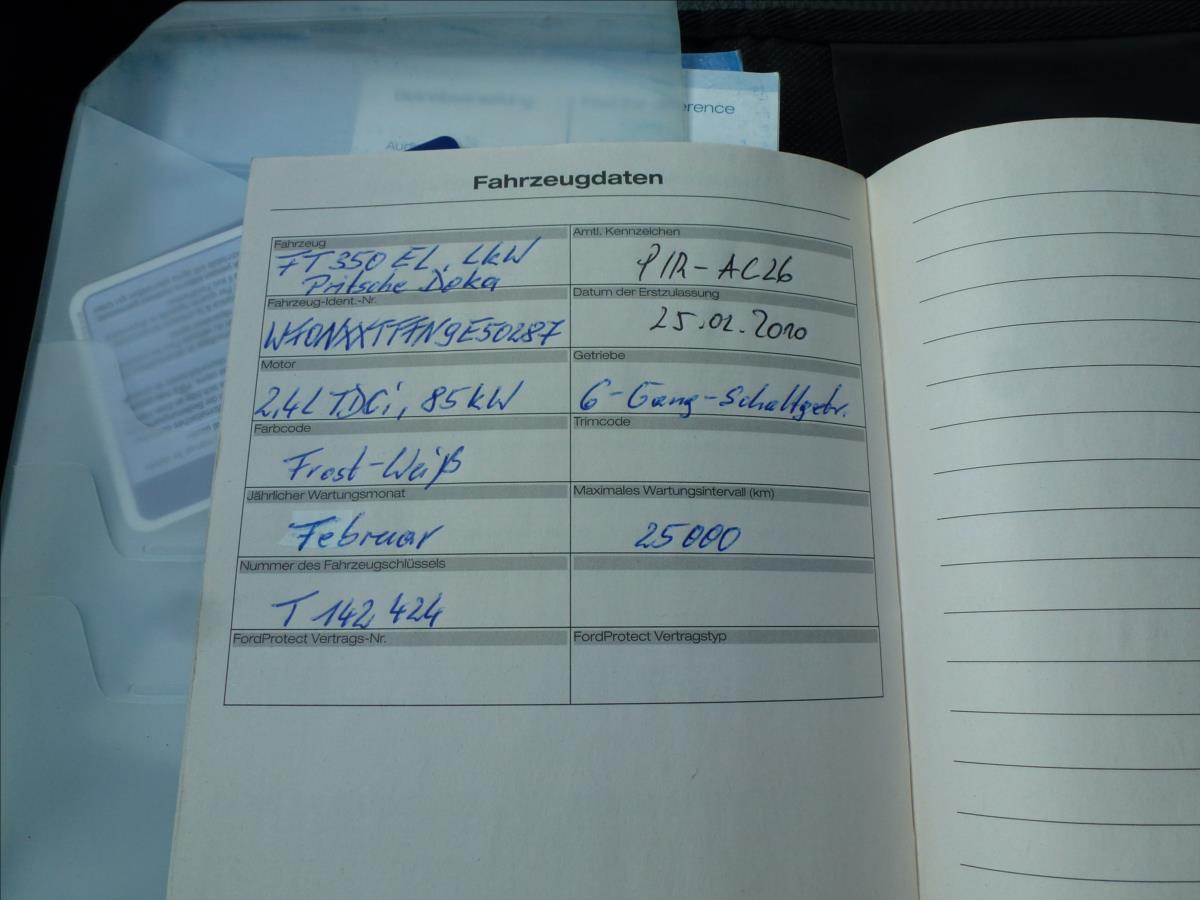 erence
Fahrzeugdaten
Fahrzeug
FT 350 EL, LKW
Pritsche Doka
Amtl. Kennzeichen
PIR-AC26
Fahrzeug-Ident.-Nr.
WF0NXXTTFN9E50287
Datum der Erstzulassung
25.02.2010
Motor
2,4L TDCi, 85kW
Getriebe
6-Gang-Schaltgetr.
Farbcode
Frost-Weiß
Trimcode
Jährlicher Wartungsmonat
Februar
Maximales Wartungsintervall (km)
25000
Nummer des Fahrzeugschlüssels
T 142424
FordProtect Vertrags-Nr.
FordProtect Vertragstyp